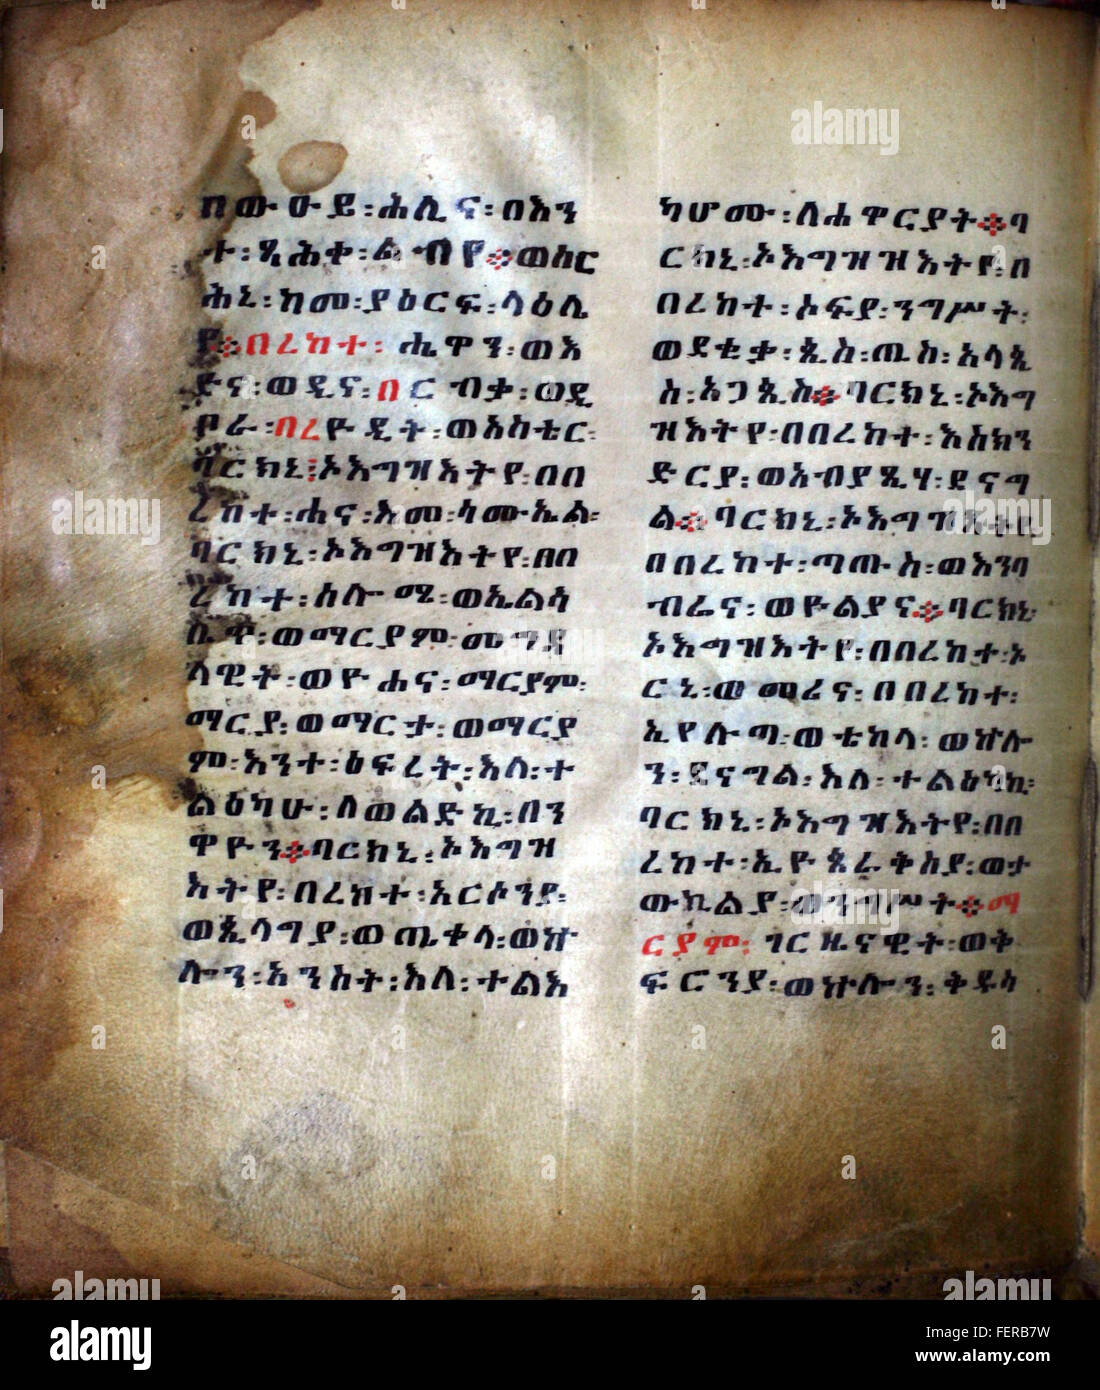 በውዑይ፡ሕሊና፡በእን
ተ፡ጺሕቀ፡ልብየ፨ወስር
ሕኒ፡ከመ፡ያዕርፍ፡ላዕሌ
የ፨በረከተ፡ሔዋን፡ወአ
ድና፡ወዲና፡በርብቃ፡ወዲ
ቦራ፡በረዮዲት፡ወአስቴር፡
ባርክኒ፡ኦእግዝእትየ፡በበ
ረከተ፡ሐና፡እመ፡ሳሙኤል፡
ባርክኒ፡ኦእግዝእትየ፡በበ
ረከተ፡ሰሎሜ፡ወኤልሳ
ቤጥ፡ወማርያም፡መግደ
ላዊት፡ወዮሐና፡ማርያም፡
ማርያ፡ወማርታ፡ወማርያ
ም፡እንተ፡ዕፍረት፡እለ፡ተ
ልዕካሁ፡ለወልድኪ፡በን
ዋዮን፨ባርክኒ፡ኦእግዝ
እትየ፡በረከተ፡አርሶንያ፡
ወጲላግያ፡ወጤቀላ፡ወኵ
ሎን፡አንስት፡እለ፡ተልእ
ካሆሙ፡ለሐዋርያት፨ባ
ርክኒ፡ኦእግዝዝእትየ፡በ
በረከተ፡ኦፍያ፡ንግሥት፡
ወደቂቃ፡ጲስ፡ጢስ፡አላጲ
ስ፡አጋጲስ፨ባርክኒ፡ኦእግ
ዝእትየ፡በበረከተ፡እስክን
ድርያ፡ወአብያጺሃ፡ደናግ
ል፨ባርክኒ፡ኦእግዝእትየ
በበረከተ፡ጣጡስ፡ወእንባ
ብሬና፡ወዮልያና፨ባርክኒ
ኦእግዝእትየ፡በበረከተ፡ኦ
ርኒ፡ወመሪና፡በበረከተ፡
ኢየሉጣ፡ወቴክላ፡ወኵሎ
ን፡፸ናግል፡እለ፡ተልዕካኪ፡
ባርክኒ፡ኦእግዝእትየ፡በበ
ረከተ፡ኢዮጰራቅስያ፡ወታ
ውክልያ፡ወንግሥት፨ማ
ርያም፡ገርዜናዊት፡ወቅ
ፍሮንያ፡ወኵሎን፡ቅዱሳ
alamy
FERB7W
www.alamy.com